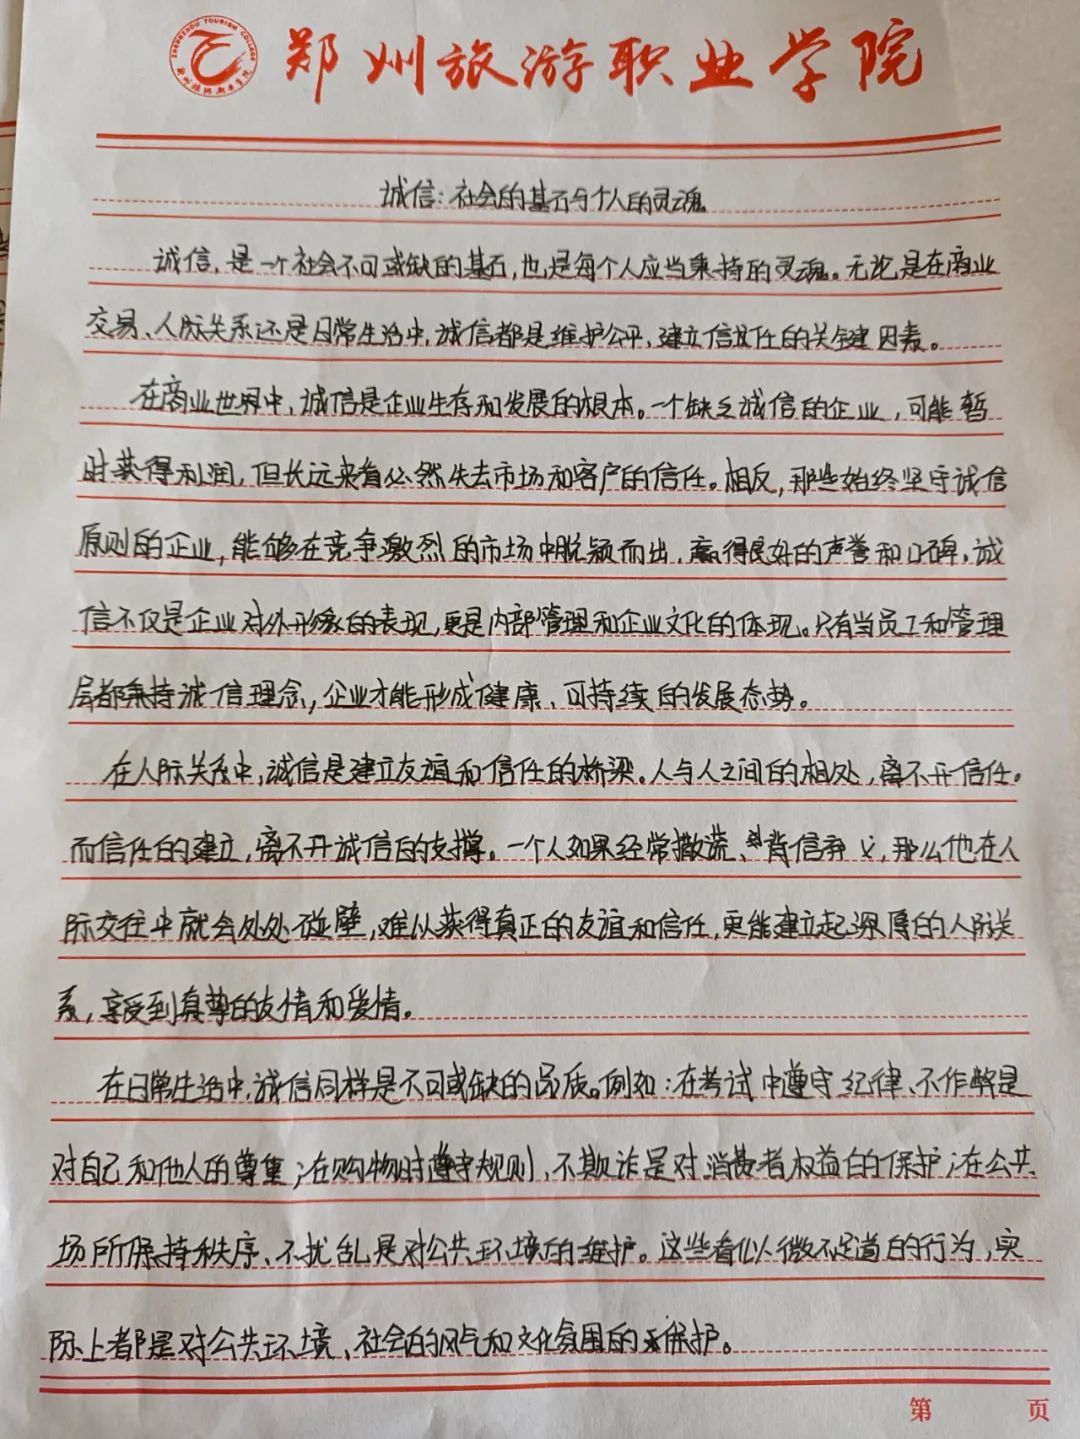 ZHENGZHOU TOURISM COLLEGE
郑州旅游职业学院
郑州旅游职业学院
诚信:社会的基石与个人的灵魂
诚信,是一个社会不可或缺的基石,也是每个人应当秉持的灵魂。无论是在商业
交易、人际关系还是日常生活中,诚信都是维护公平、建立信任的关键因素。
在商业世界中,诚信是企业生存和发展的根本。一个缺乏诚信的企业,可能暂
时获得利润,但长远来看必然失去市场和客户的信任。相反,那些始终坚守诚信
原则的企业,能够在竞争激烈的市场中脱颖而出,赢得良好的声誉和口碑。诚
信不仅是企业对外形象的表现,更是内部管理和企业文化的体现。只有当员工和管理
层都秉持诚信理念,企业才能形成健康、可持续的发展态势。
在人际关系中,诚信是建立友谊和信任的桥梁。人与人之间的相处,离不开信任。
而信任的建立,离不开诚信的支撑。一个人如果经常撒谎、背信弃义,那么他在人
际交往中就会处处碰壁,难以获得真正的友谊和信任,更能建立起深厚的人际关
系,享受到真挚的友情和爱情。
在日常生活中,诚信同样是不可或缺的品质。例如:在考试中遵守纪律、不作弊是
对自己和他人的尊重;在购物时遵守规则、不欺诈是对消费者权益的保护;在公共
场所保持秩序、不扰乱是对公共环境的维护。这些看似微不足道的行为,实
际上都是对公共环境、社会的风气和文化氛围的保护。
第 页